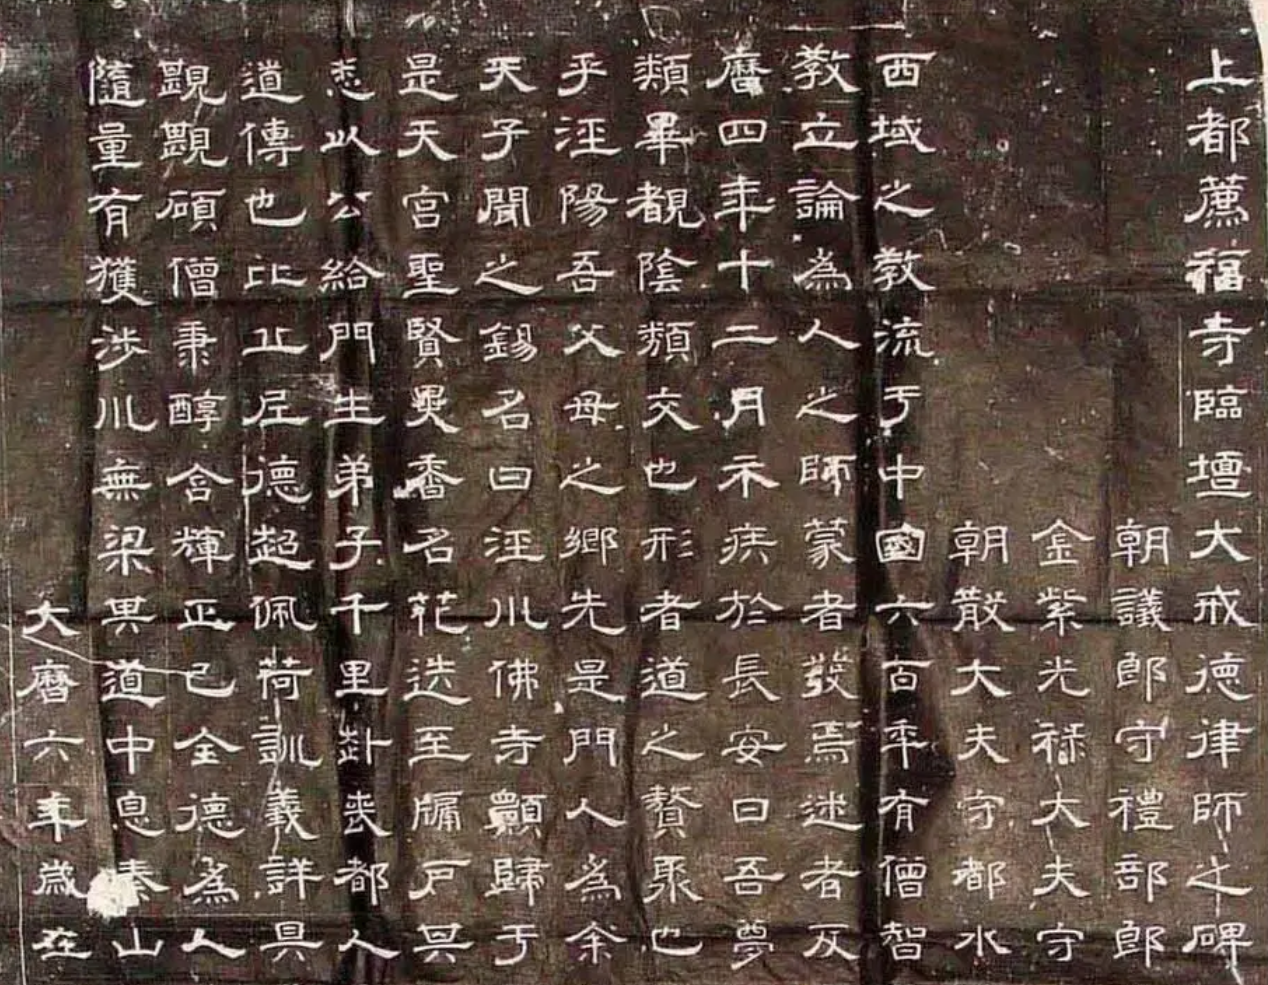 上都薦福寺臨壇大戒德律師之碑
朝議郎守禮部郎
金紫光祿大夫守
朝散大夫守都水
西域之教流于中國六百年有僧智
教立論為人之師蒙者發焉迷者反
曆四年十二月示疾於長安曰吾夢
類畢覩陰類交也形者道之贅聚也
乎涇陽吾父母之鄉先是門人為余
天子聞之錫名曰涇川佛寺顥歸于
是天宮聖賢異香名花迭至牖戶其
悉以公給門生弟子千里赴喪都人
道傳也比丘尼德超佩荷訓義詳具
覬覬碩僧秉醇含輝正己全德為人
隨量有獲涉川無梁異道中息泰山
大曆六年歲在